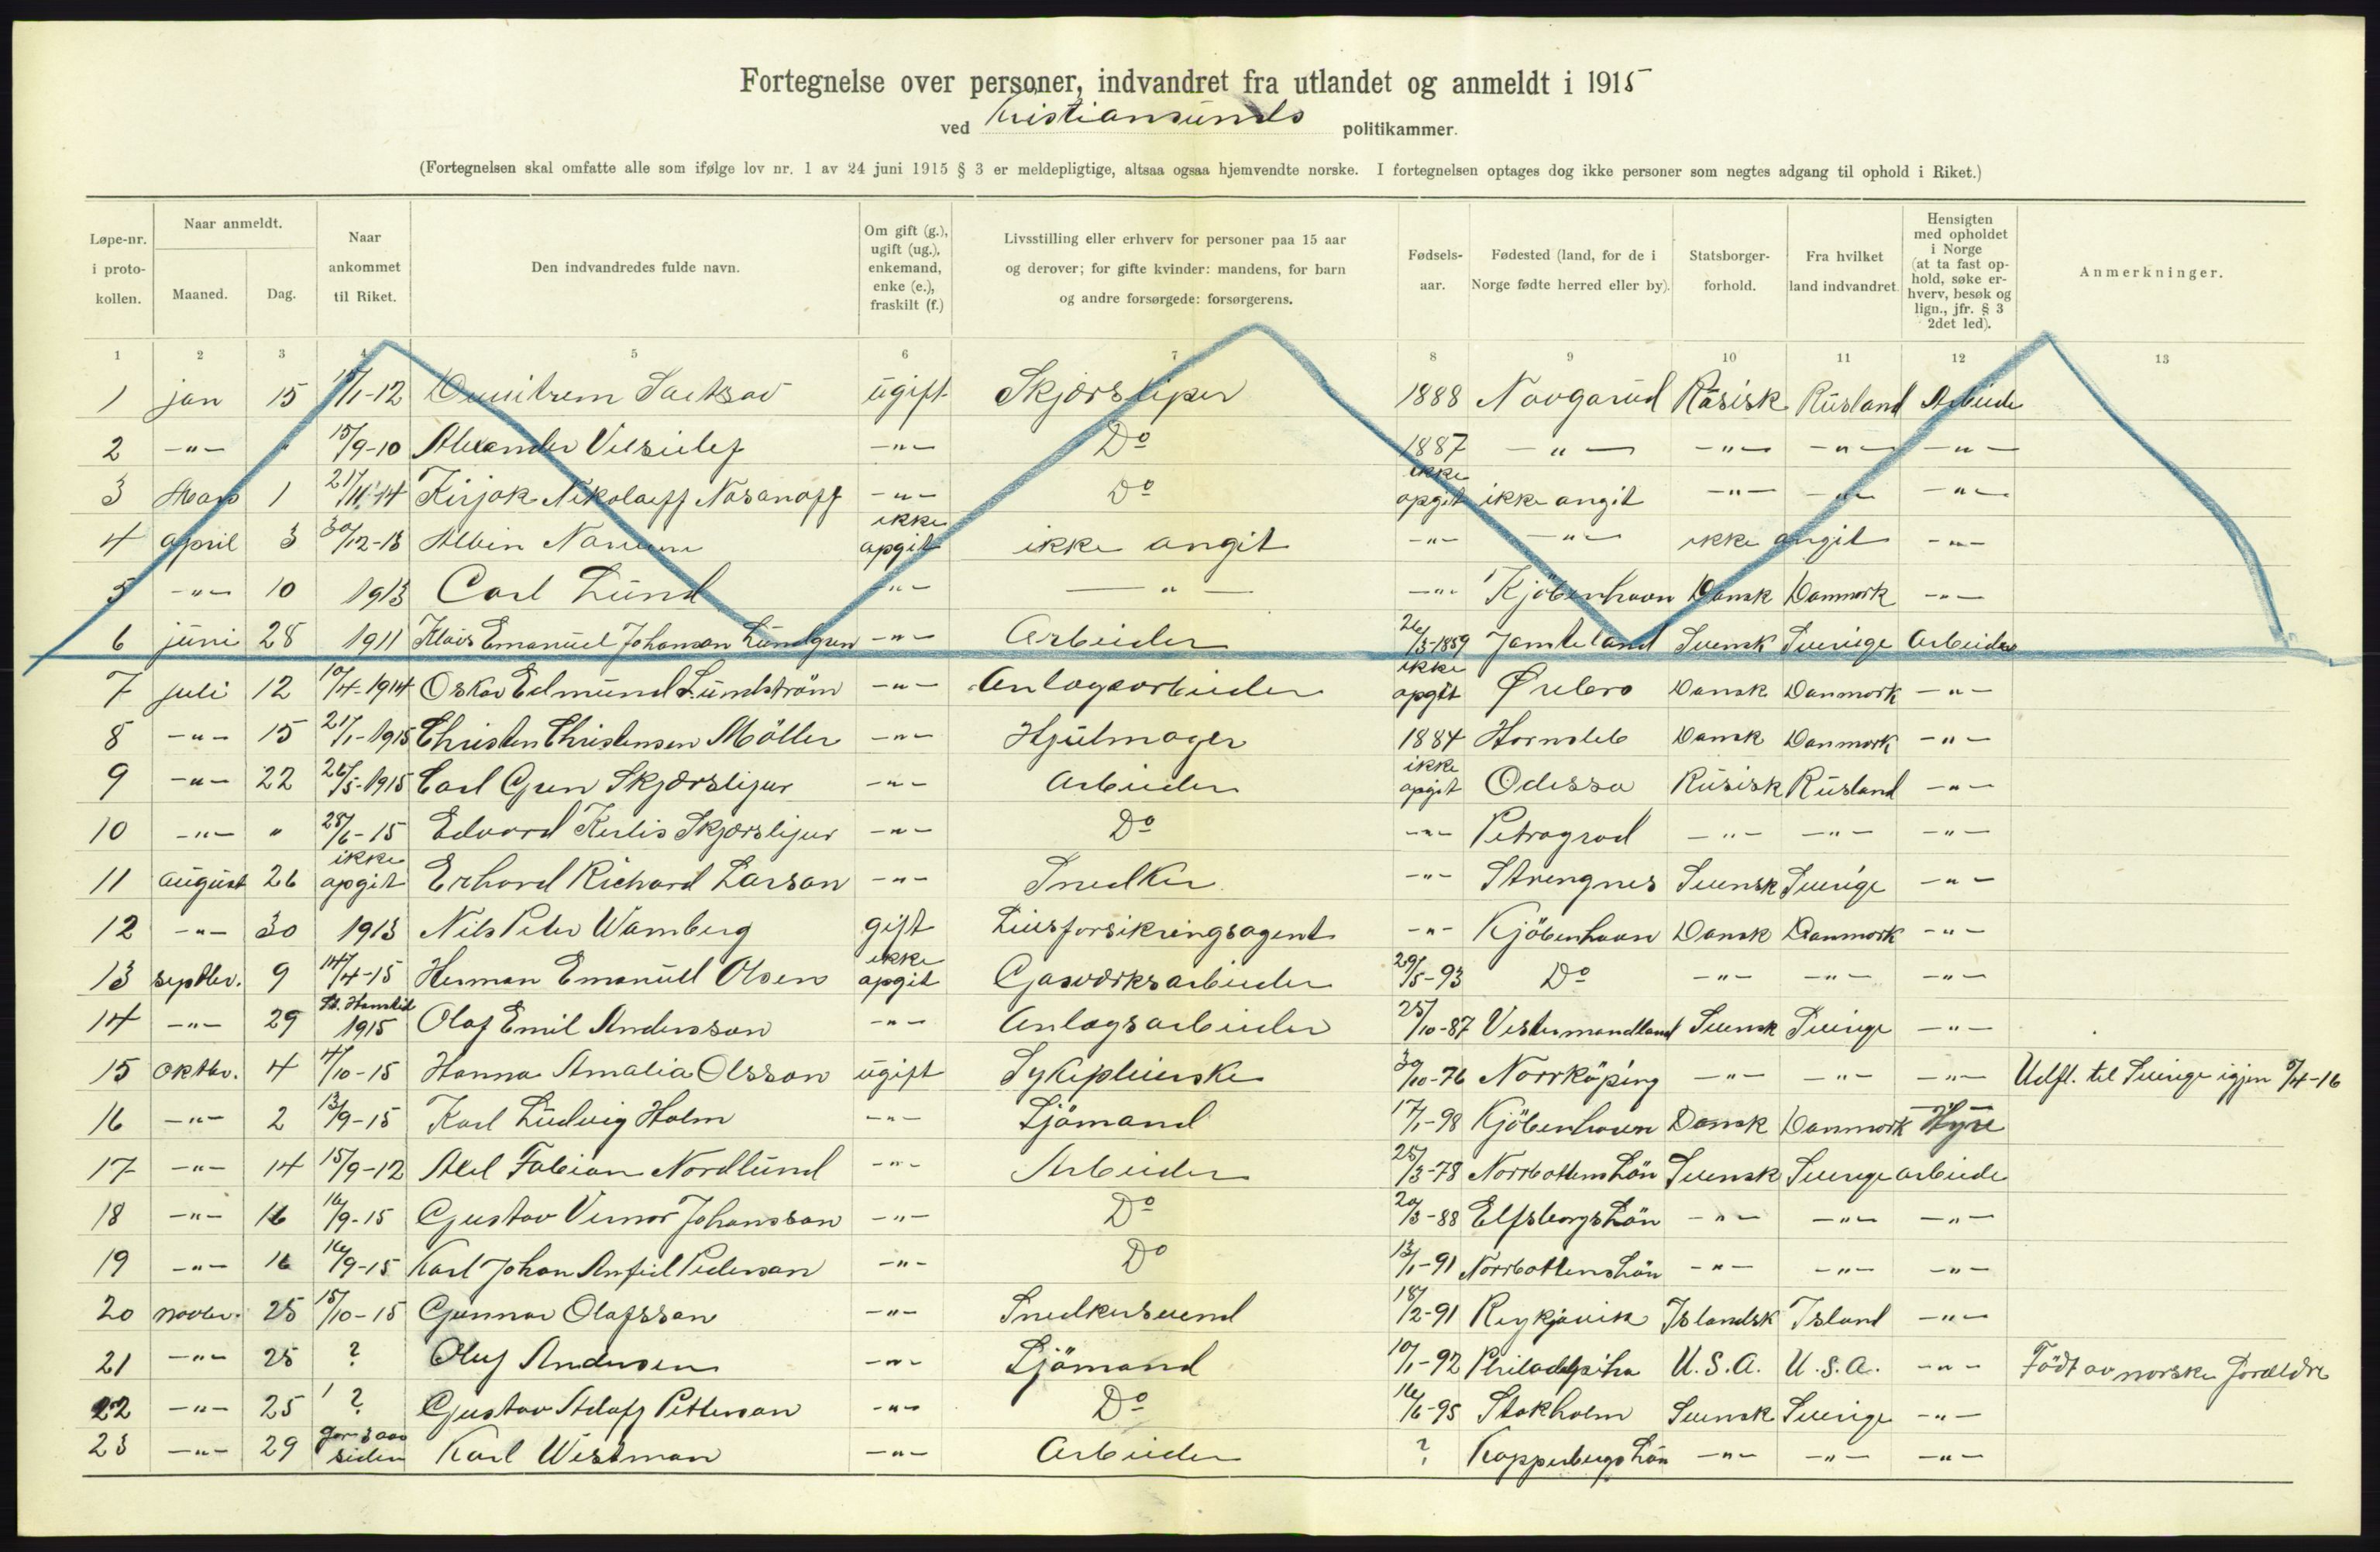 Fortegnelse over personer, indvandret fra utlandet og anmeldt i 1915
ved Kristiansunds politikammer.
(Fortegnelsen skal omfatte alle som ifølge lov nr. 1 av 24 juni 1915 § 3 er meldepligtige, altsaa ogsaa hjemvendte norske. I fortegnelsen optages dog ikke personer som negtes adgang til ophold i Riket.)
Løpe-nr. i proto-kollen. Naar anmeldt. Maaned. Dag. Naar ankommet til Riket. Den indvandredes fulde navn. Om gift (g.), ugift (ug.), enkemand, enke (e.), fraskilt (f.) Livsstilling eller erhverv for personer paa 15 aar og derover; for gifte kvinder: mandens, for barn og andre forsørgede: forsørgerens. Fødsels-aar. Fødested (land, for de i Norge fødte herred eller by). Statsborger-forhold. Fra hvilket land indvandret. Hensigten med opholdet i Norge (at ta fast op-hold, søke er-hverv, besøk og lign., jfr. § 3 2det led). Anmerkninger.
1 2 3 4 5 6 7 8 9 10 11 12 13
1 jan 15 15/1-12 ugift Skjærsliper 1888 Novgarud Rusisk Rusland Arbeide
2 -"- " 15/9-10 Alexander -"- Do 1887 -"- -"- -"- -"-
3 Mars 1 21/11-14 Kirjak Nikolaeff Nasanoff -"- Do ikke opgit ikke angit -"- -"- -"-
4 april 3 30/12-13 Albin ikke opgit ikke angit -"- -"- ikke angit -"-
5 -"- 10 1913 Carl Lund -"- -"- -"- Kjöbenhavn Dansk Danmark -"-
6 juni 28 1911 Klais Emanuel Johanson Lundgren -"- Arbeider 26/3-1859 Jamteland Svensk Sverige Arbeide
7 juli 12 10/4-1914 Oskar Edmund Lundström -"- Anlægsarbeider ikke opgit Ørebro Dansk Danmark -"-
8 -"- 15 21/1-1915 Christen Christensen Möller -"- Hjulmager 1884 Hornsleb Dansk Danmark -"-
9 -"- 22 26/5-1915 Carl Gren Skjærsliper -"- Arbeider ikke opgit Odessa Rusisk Rusland -"-
10 -"- " 28/6-15 Edvard Kerlis Skjærsliper -"- Do -"- Petrograd -"- -"- -"-
11 august 26 ikke opgit Erhard Richard Larson -"- Snedker -"- Strengnes Svensk Sverige -"-
12 -"- 30 1913 Nils Peter Wamberg gift Livsforsikringsagent -"- Kjöbenhavn Dansk Danmark -"-
13 septbr. 9 14/4-15 Herman Emanuel Olsen ikke opgit Gasværksarbeider 29/5-93 Do -"- -"- -"-
14 -"- 29 1915 Olaf Emil Andersson -"- Anlægsarbeider 25/10-87 Vestermandland Svensk Sverige -"-
15 oktbr. 4 4/10-15 Hanna Amalia Olsson ugift Sykepleierske 30/10-76 Norrköping -"- -"- -"- Udfl. til Sverige igjen 5/4-16
16 -"- 2 13/9-15 Karl Ludvig Holm -"- Sjömand 17/1-98 Kjöbenhavn Dansk Danmark Hyre
17 -"- 14 15/9-12 Axel Fabian Nordlund -"- Arbeider 25/3-78 Norrbottens Län Svensk Sverige arbeide
18 -"- 16 16/9-15 Gustav Verner Johansson -"- Do 20/3-88 Elfsborgs Län -"- -"- -"-
19 -"- 16 16/9-15 Karl Johan Pederson -"- Do 13/1-91 Norrbottens Län -"- -"- -"-
20 novbr. 25 15/10-15 Gunnar Olafsson -"- Snedkersvend 18/2-91 Reykjavik Islandsk Island -"-
21 -"- 25 ? Oluf Andersen -"- Sjömand 10/1-92 Philadelphia U.S.A. U.S.A. -"- Födt av norske foreldre
22 -"- 25 ? Gustav Adolf Petterson -"- Do 16/6-95 Stokholm Svensk Sverige -"-
23 -"- 29 for 3 aar siden Karl Westman -"- Arbeider ? Kopperbergs Län -"- -"- -"-